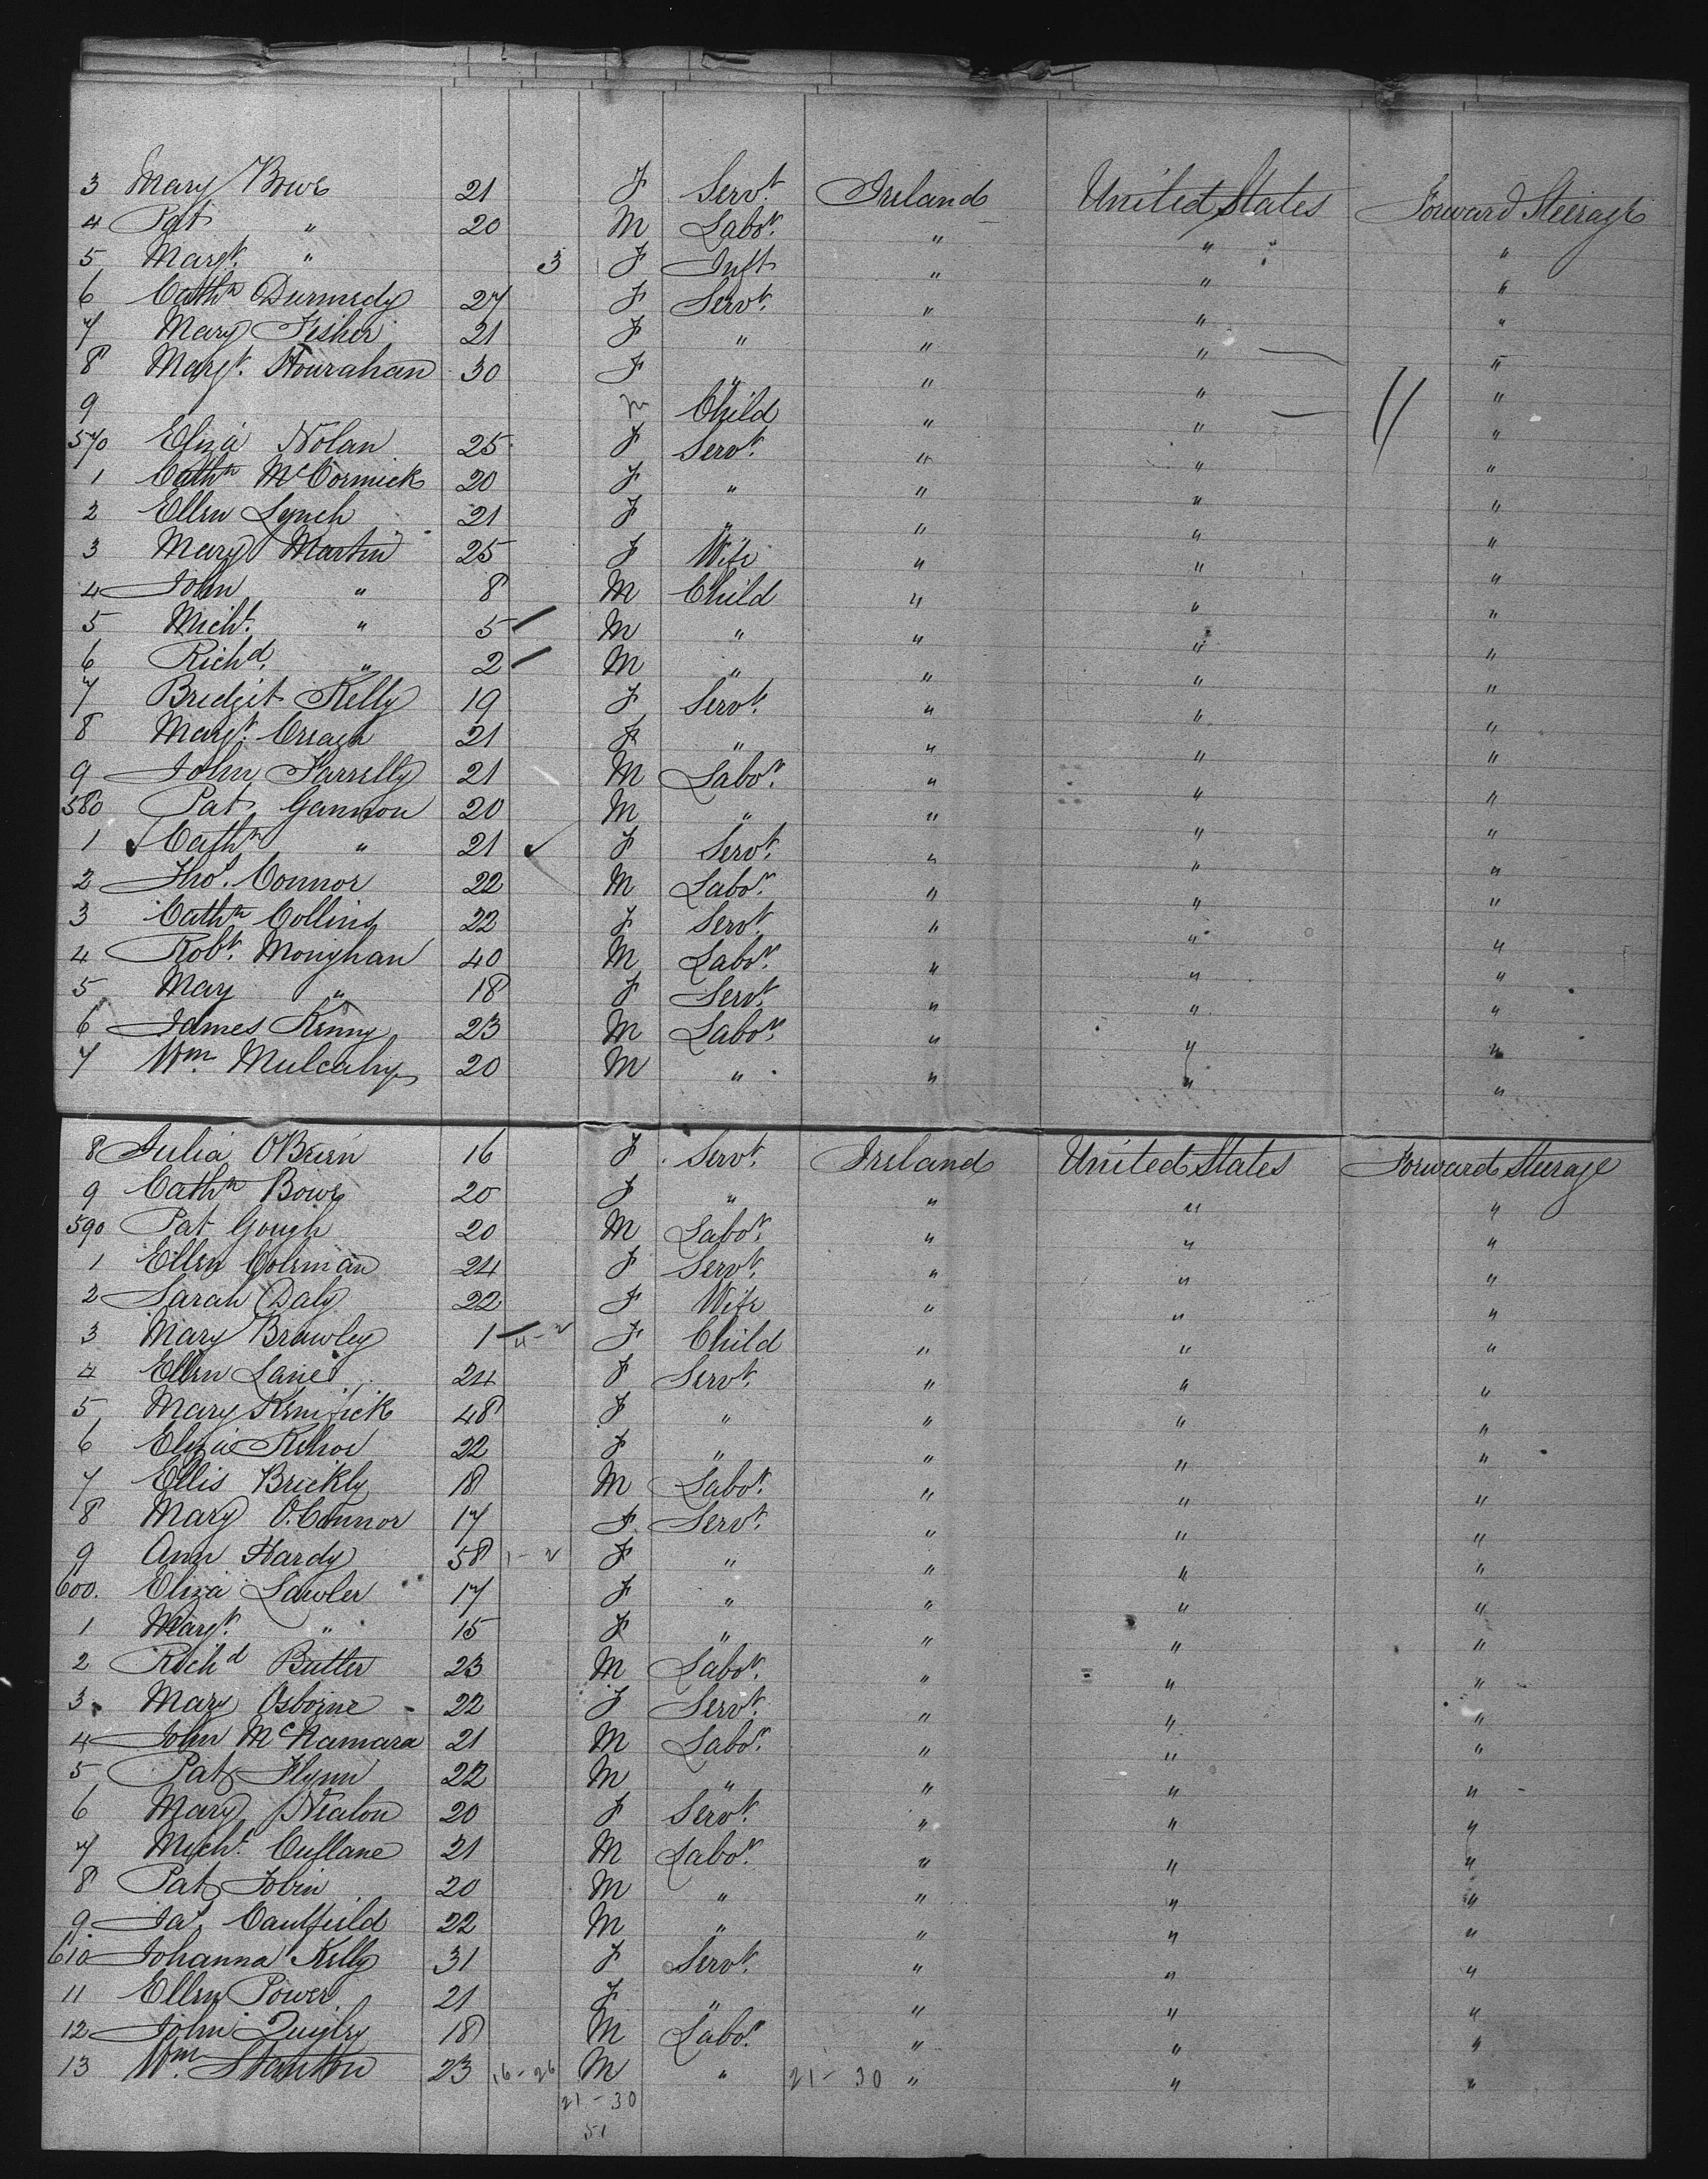 3 Mary Bowe 21 F Servt. Ireland United States Forward Steerage
4 Pat " 20 M Labor. " " "
5 Margt. " 3 F Inft " " "
6 Cathn Durmedy 27 F Servt. " " "
7 Mary Fisher 21 F " " " "
8 Margt. Hourahan 30 F " " " "
9 m Child " " "
570 Eliza Nolan 25 F Servt. " " "
1 Cathn McCormick 20 F " " " "
2 Ellen Lynch 21 F " " " "
3 Mary Martin 25 F Wife " " "
4 John " 8 M Child " " "
5 Michl. " 5 M " " " "
6 Richd. " 2 M " " " "
7 Bridget Kelly 19 F Servt. " " "
8 Margt. Creagh 21 F " " " "
9 John Farrelly 21 M Labor. " " "
580 Pat Gannon 20 M " " " "
1 Cathn " 21 F Servt. " " "
2 Thos. Connor 22 M Labor. " " "
3 Cathn Collins 22 F Servt. " " "
4 Robt. Monyhan 40 M Labor. " " "
5 May " 18 F Servt. " " "
6 James Kenny 23 M Labor. " " "
7 Wm. Mulcahy 20 M " " " "
8 Julia OBrien 16 F Servt. Ireland United States Forward Steerage
9 Cathn Bowe 20 F " " " "
590 Pat Gough 20 M Labor. " " "
1 Ellen Coleman 24 F Servt. " " "
2 Sarah Daly 22 F Wife " " "
3 Mary Brawley 1 F Child " " "
4 Ellen Lane 24 F Servt. " " "
5 Mary Kenifick 48 F " " " "
6 Eliza Kehoe 22 F " " " "
7 Ellis Brickly 18 M Labor. " " "
8 Mary O.Connor 17 F Servt. " " "
9 Ann Hardy 58 F " " " "
600. Eliza Lawler 17 F " " " "
1 Margt. " 15 F " " " "
2 Richd Butler 23 M Labor. " " "
3 Mary Osborne 22 F Servt. " " "
4 John McNamara 21 M Labor. " " "
5 Pat Flynn 22 M " " " "
6 Mary Neaton 20 F Servt. " " "
7 Michl. Cuflane 21 M Labor. " " "
8 Pat Tobin 20 M " " " "
9 Jas. Caulfield 22 M " " " "
610 Johanna Kelly 31 F Servt. " " "
11 Ellen Power 21 F " " " "
12 John Quigley 18 M Labor. " " "
13 Wm. Stanton 23 16-26 M " 21-30 " " "
21-30
51